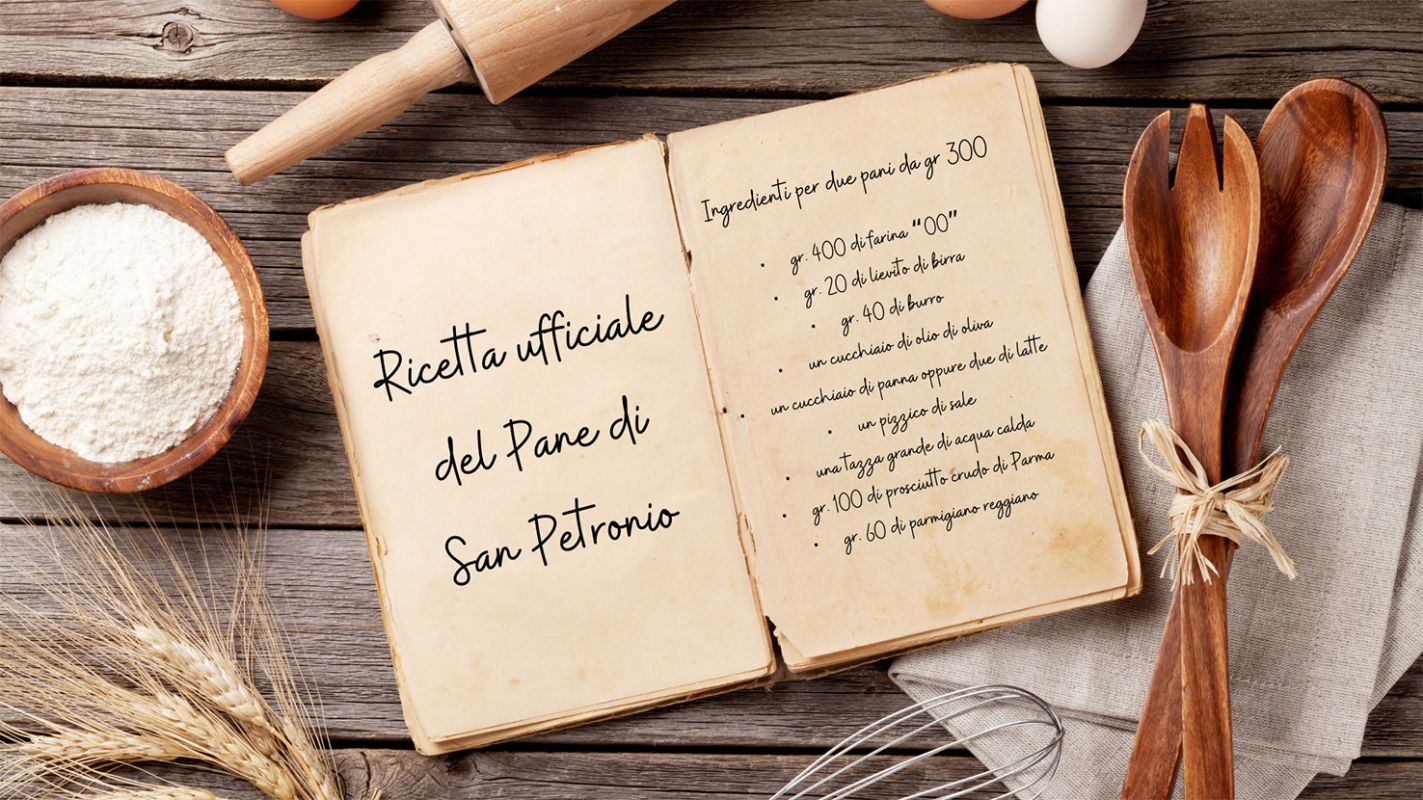 Ricetta ufficiale
del Pane di
San Petronio
Ingredienti per due pani da gr 300
• gr. 400 di farina "00"
• gr. 20 di lievito di birra
• gr. 40 di burro
• un cucchiaio di olio di oliva
• un cucchiaio di panna oppure due di latte
• un pizzico di sale
• una tazza grande di acqua calda
• gr. 100 di prosciutto crudo di Parma
• gr. 60 di parmigiano reggiano